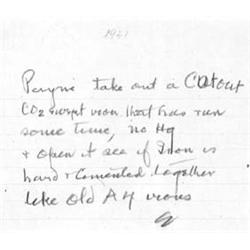 1941
Payne take out a C
CO2 that has run
some time, no Hg
& open it see if Iron is
hard & cemented together
like old A 4